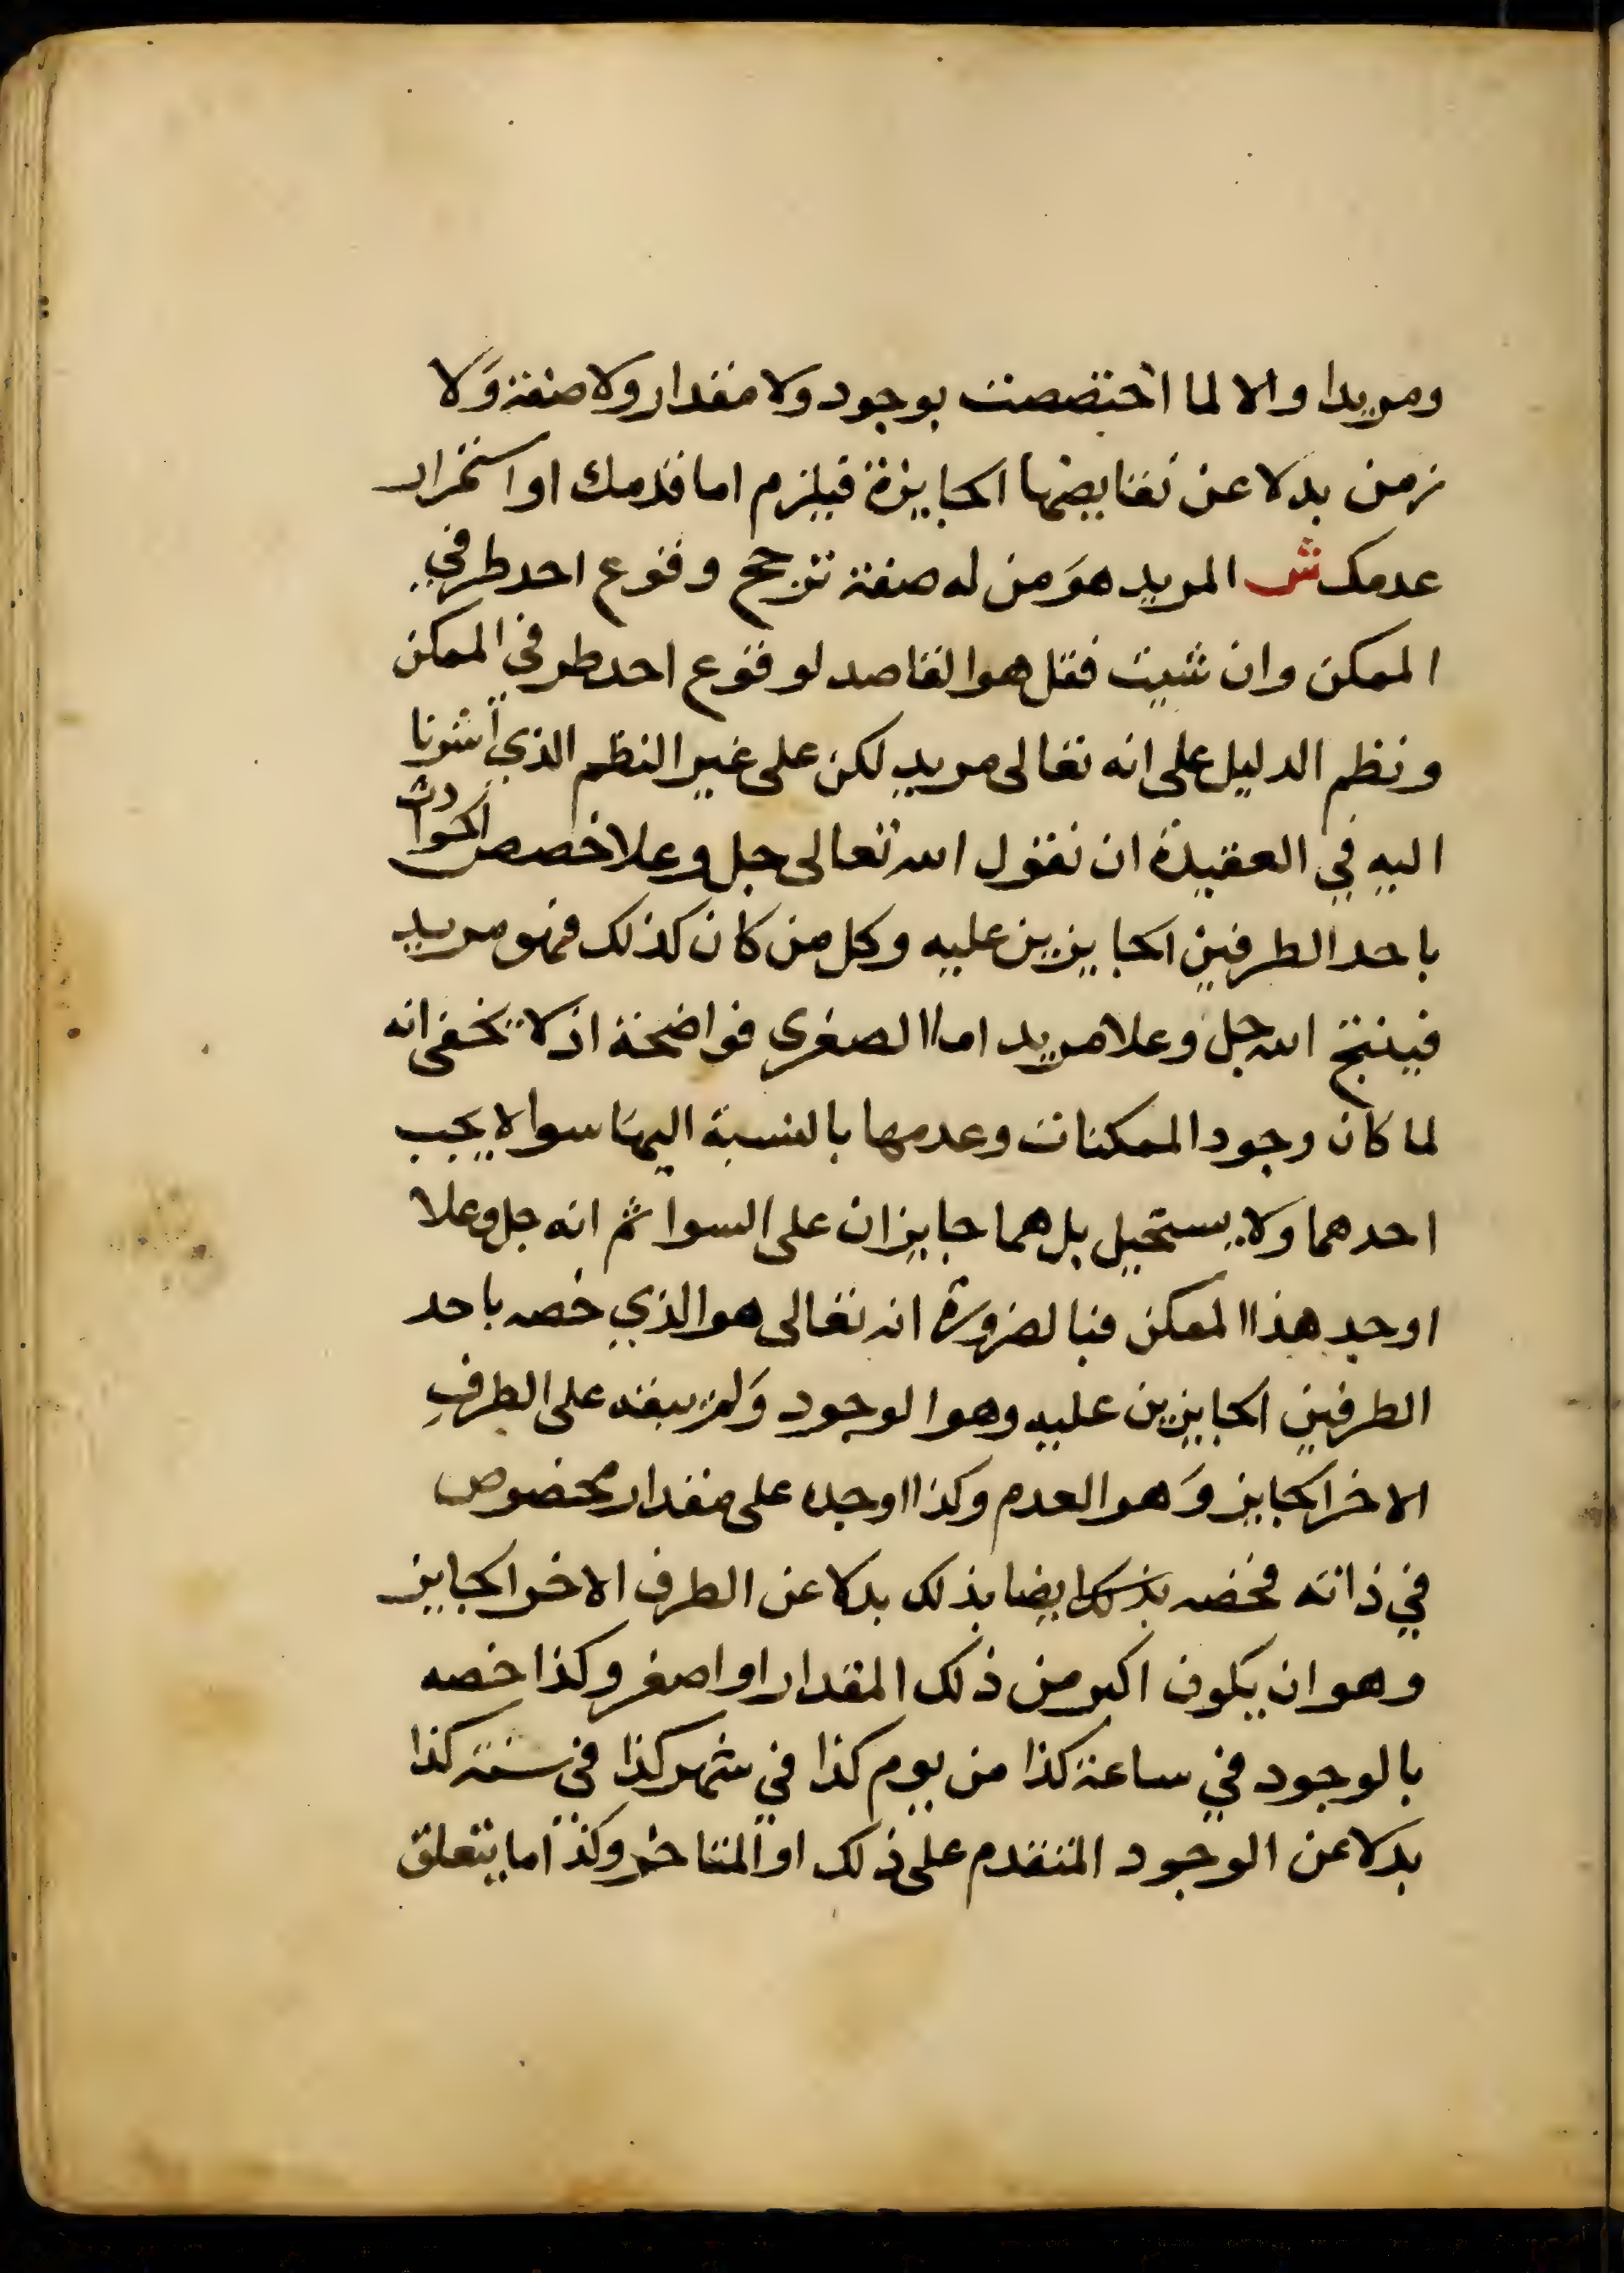 ومريدا والا لما اختصصت بوجود ولا مقدار ولا صفة وَلا
زمن بدلا عن نقايضها الجايزة فيلزم اما قدمك او استمرار
عدمك ش المريد هوَ من له صفة ترجح وقوع احد طرفي
الممكن وان شيت فقل هو القاصد لوقوع احد طرفي الممكن
ونظم الدليل على انه تعالى مريد لكن على غير النظم الذي أشرنا
اليه في العقيدة ان نقول الله تعالى جل وعلا خصص الحوادث
باحد الطرفين الجايزين عليه وكل من كان كذلك فهو مريد
فينتج الله جل وعلا مريد اما الصغرى فواضحة اذ لا يخفى انه
لما كان وجود الممكنات وعدمها بالنسبة اليها سوا لا يجب
احدهما وَلا يستحيل بل هما جايزان على السوا ثم انه جل وعلا
اوجد هذا الممكن فبالضرورة انه تعالى هو الذي خصه باحد
الطرفين الجايزين عليه وهو الوجود وَلم يبقه على الطرف
الاخر الجايز وَهو العدم وكذا اوجده على مقدار مخصوص
في ذاته فخصه بذلك ايضا بذلك بدلا عن الطرف الاخر الجايز
وهو ان يكون اكبر من ذلك المقدار او اصغر وكذا خصه
بالوجود في ساعة كذا من يوم كذا في شهر كذا في سنة كذا
بدلا عن الوجود المتقدم على ذلك او المتاخر وكذا ما يتعلق